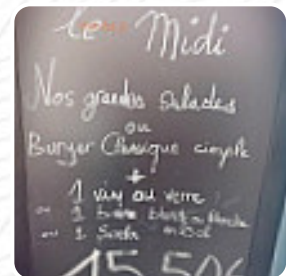 Le Midi
Nos grandes Salades
ou
Burger Classique simple
+
1 vin au verre
ou 1 bière
ou 1 Soda
15,50€